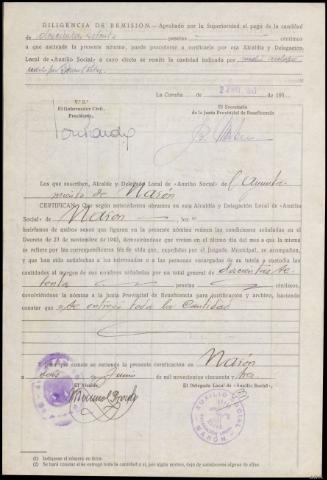 DILIGENCIA DE REMISIÓN.—Aprobado por la Superioridad el pago de la cantidad
de doscientas setenta pesetas — céntimos
a que asciende la presente nómina, puede procederse a verificarlo por esa Alcaldía y Delegación
Local de «Auxilio Social» a cuyo efecto se remite la cantidad indicada por
La Coruña, de de 195
V.º B.º
El Gobernador Civil,
Presidente,
El Secretario
de la Junta Provincial de Beneficencia
Los que suscriben, Alcalde y Delegado Local de «Auxilio Social» de l Ayunta-
miento de Narón
CERTIFICAN: Que según antecedentes obrantes en esta Alcaldía y Delegación Local de «Auxilio
Social» de Narón
huérfanos de ambos sexos que figuran en la presente nómina reúnen las condiciones señaladas en el
Decreto de 23 de noviembre de 1940, demostrándose que vivían en el último día del mes a que la misma
se refiere por las correspondientes fés de vida que, expedidas por el Juzgado Municipal, se acompañan,
y que han sido satisfechas a los interesados o a las personas encargadas de su tutela o custodia las
cantidades al margen de sus nombres señaladas por un total general de doscientas se-
tenta pesetas céntimos,
devolviéndose la nómina a la Junta Provincial de Beneficencia para justificación y archivo, haciendo
constar que se entregó toda la cantidad
Y para que conste se extiende la presente certificación en Narón
a de Junio de mil novecientos cincuenta y tres
El Alcalde,
El Delegado Local de «Auxilio Social»,
AUXILIO SOCIAL
NARÓN
(1) Indíquese el número en letra.
(2) Se hará constar si se entregó toda la cantidad o si, por algún motivo, dejó de satisfacerse alguna de ellas.